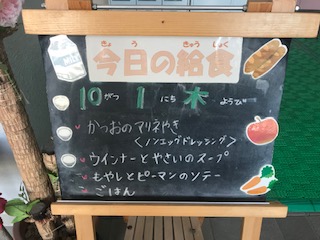 きょう きゅうしょく
今日の給食
10がつ 1にち 木ようび
かつおのマリネやき
＜ノンエッグドレッシング＞
ウインナーとやさいのスープ
もやしとピーマンのソテー
ごはん